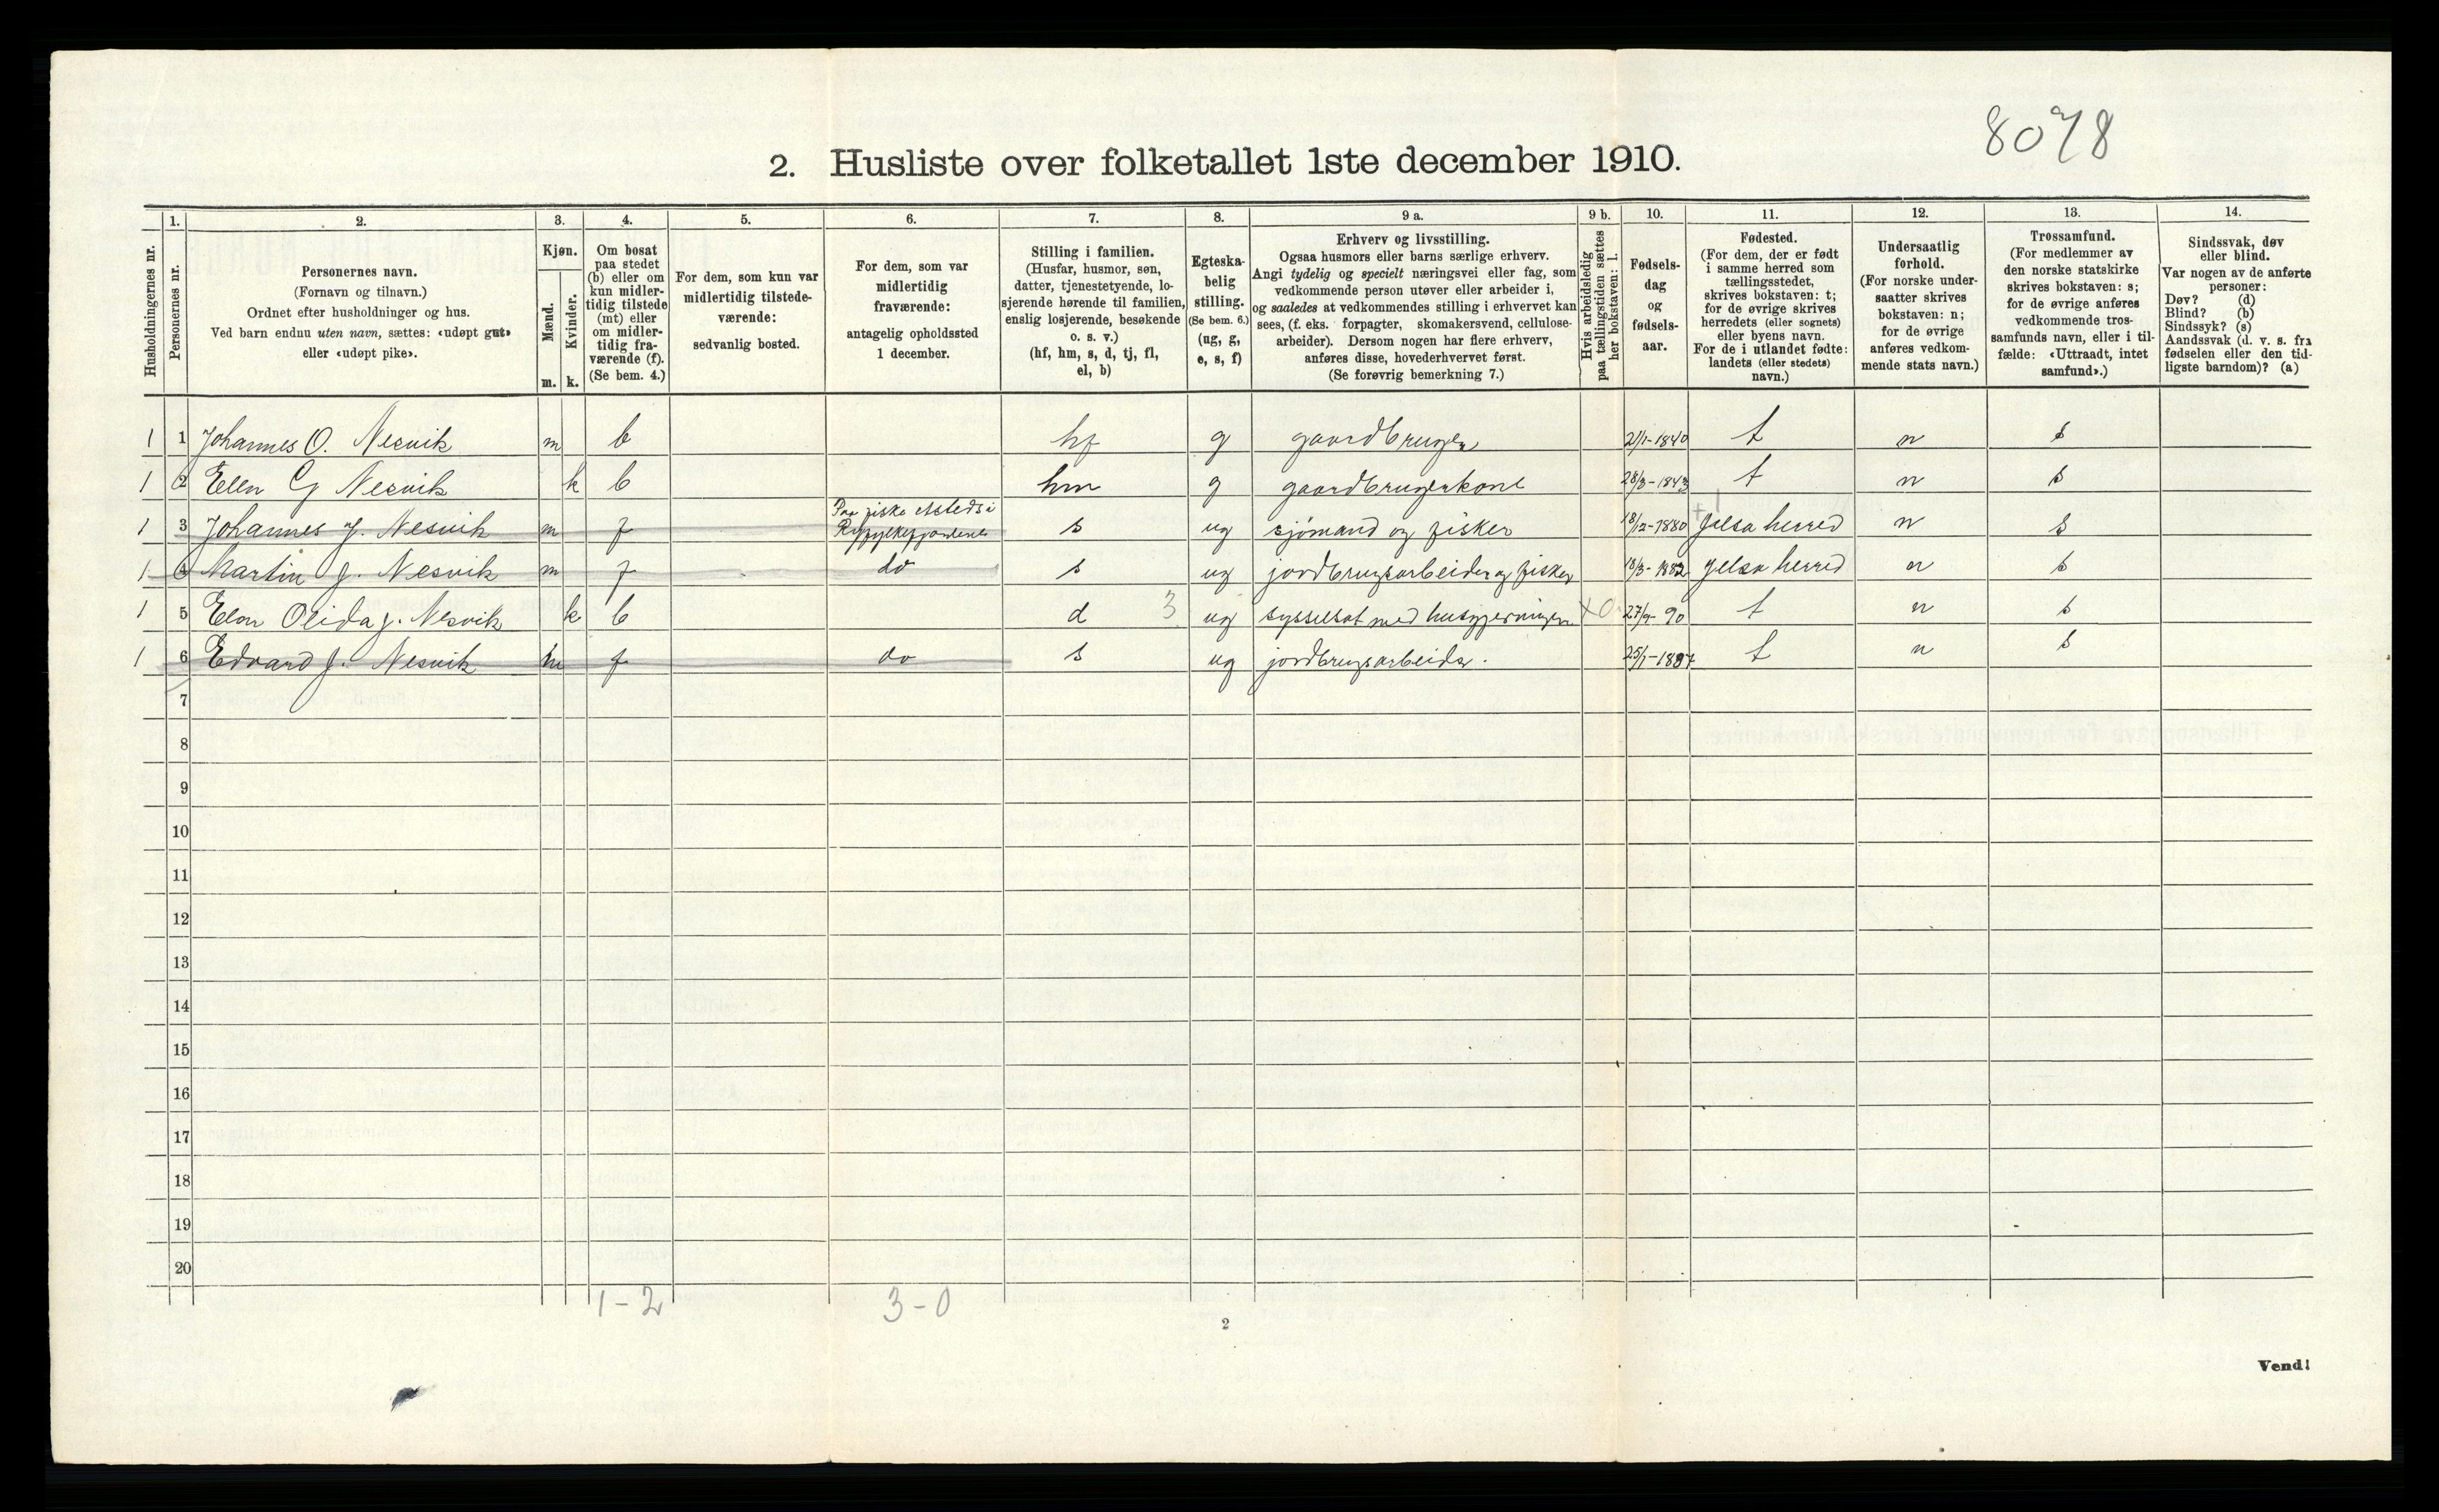 8078
2. Husliste over folketallet 1ste december 1910.
Husholdningernes nr.
1. Personernes nr.
2. Personernes navn.
(Fornavn og tilnavn.)
Ordnet efter husholdninger og hus.
Ved barn endnu uten navn, sættes: «udøpt gut»
eller «udøpt pike».
3. Kjøn.
Mænd. m.
Kvinder. k.
4. Om bosat
paa stedet
(b) eller om
kun midler-
tidig tilstede
(mt) eller
om midler-
tidig fra-
værende (f).
(Se bem. 4.)
5. For dem, som kun var
midlertidig tilstede-
værende:
sedvanlig bosted.
6. For dem, som var
midlertidig
fraværende:
antagelig opholdssted
1 december.
7. Stilling i familien.
(Husfar, husmor, søn,
datter, tjenestetyende, lo-
sjerende hørende til familien,
enslig losjerende, besøkende
o. s. v.)
(hf, hm, s, d, tj, fl,
el, b)
8. Egteska-
belig
stilling.
(Se bem. 6.)
(ug, g,
e, s, f)
9 a. Erhverv og livsstilling.
Ogsaa husmors eller barns særlige erhverv.
Angi tydelig og specielt næringsvei eller fag, som
vedkommende person utøver eller arbeider i,
og saaledes at vedkommendes stilling i erhvervet kan
sees, (f. eks. forpagter, skomakersvend, cellulose-
arbeider). Dersom nogen har flere erhverv,
anføres disse, hovederhvervet først.
(Se forøvrig bemerkning 7.)
9 b. Hvis arbeidsledig
paa tællingstiden sættes
her bokstaven: l.
10. Fødsels-
dag
og
fødsels-
aar.
11. Fødested.
(For dem, der er født
i samme herred som
tællingsstedet,
skrives bokstaven: t;
for de øvrige skrives
herredets (eller sognets)
eller byens navn.
For de i utlandet fødte:
landets (eller stedets)
navn.)
12. Undersaatlig
forhold.
(For norske under-
saatter skrives
bokstaven: n;
for de øvrige
anføres vedkom-
mende stats navn.)
13. Trossamfund.
(For medlemmer av
den norske statskirke
skrives bokstaven: s;
for de øvrige anføres
vedkommende tros-
samfunds navn, eller i til-
fælde: «Uttraadt, intet
samfund».)
14. Sindssvak, døv
eller blind.
Var nogen av de anførte
personer:
Døv? (d)
Blind? (b)
Sindssyk? (s)
Aandssvak (d. v. s. fra
fødselen eller den tid-
ligste barndom)? (a)
1 1 Johannes O. Nesvik m b hf g gaardbruger 2/1-1840 t n s
1 2 Ellen G Nesvik k b hm g gaardbrugerkone 28/3-1843 t n s
1 3 Johannes J. Nesvik m f Paa fiske etsteds i s ug sjømand og fisker 18/12-1880 Jelsa herred n s
1 4 Martin J. Nesvik m f do s ug jordbrugsarbeider og fisker 18/3-1882 Jelsa herred n s
1 5 Elen Olida J. Nesvik k b d 3 ug sysselsat med husgjerninger 27/9-90 t n s
1 6 Edvard J. Nesvik m f do s ug jordbrugsarbeider. t n s
7
8
9
10
11
12
13
14
15
16
17
18
19
20
1-2 3-0
2
Vend!